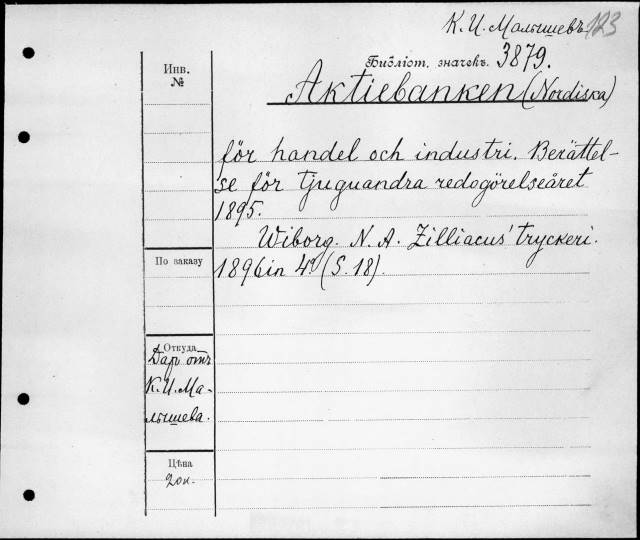 К. И. Малышевъ 123
Библіот. значекъ. 3879.
Инв.
№
Aktiebanken (Nordiska)
för handel och industri. Berättel-
se för tjuguandra redogörelseåret
1895.
Wiborg. N. A. Zilliacus' tryckeri.
1896 in 4° (S. 18).
По заказу
Откуда
Даръ отъ
К. И. Ма-
лышева.
Цѣна
20 к.